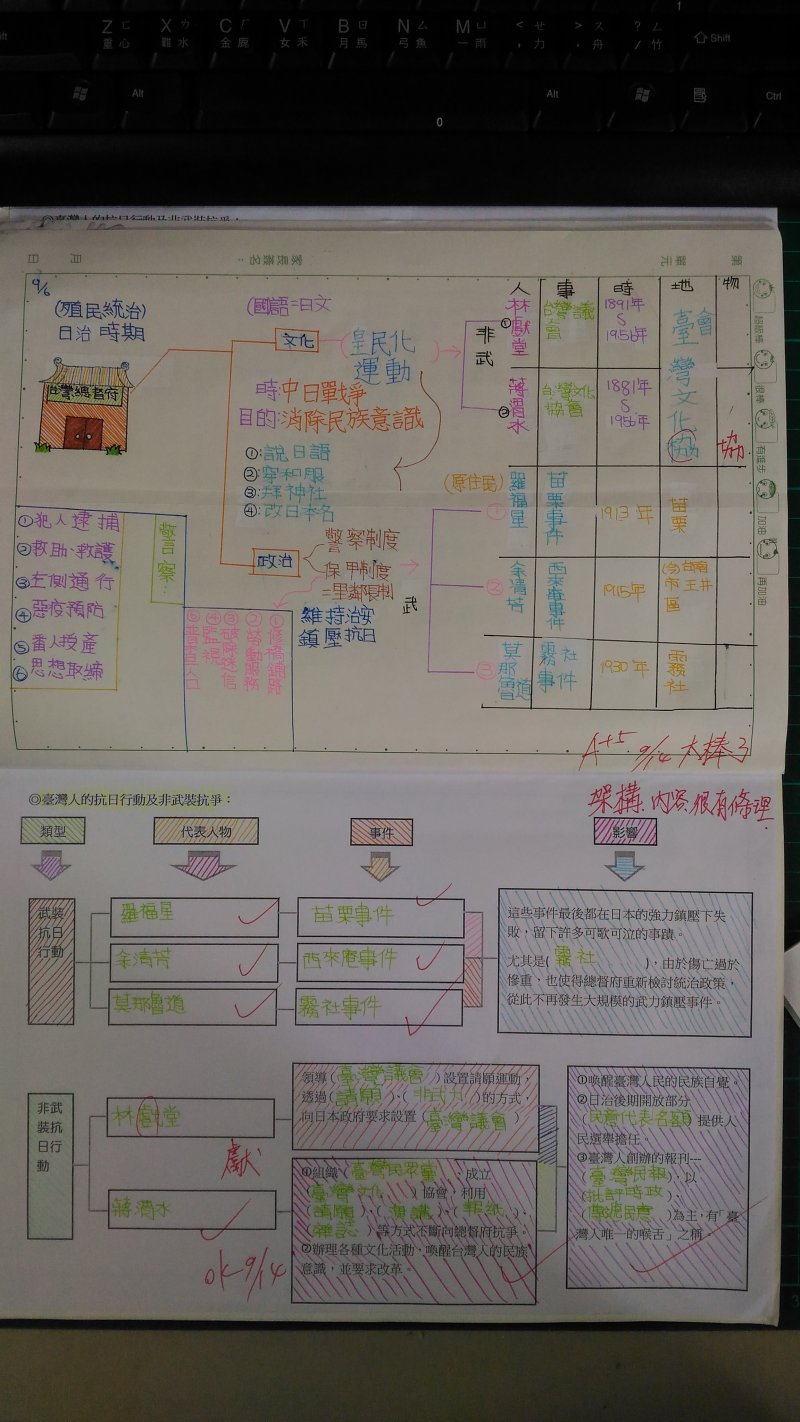 Z ㄈ 重 心
X ㄌ 難 水
C ㄏ 金 尸
V ㄒ 女 禾
B ㄖ 月 馬
N ㄙ 弓 魚
M ㄩ 一 雨
< , ㄝ 力
> . ㄡ 舟
? / ㄥ 竹
Shift
Alt
Alt
Ctrl
◎臺灣人的抗日行動及非武裝抗爭：
日 月
家長簽名：
單元 第
9/6
(殖民統治)
日治時期
台灣總督府
(國語=日文
文化
(皇民化
運動)
時:中日戰爭
目的:消除民族意識
①:說日語
②:穿和服
③:拜神社
④:改日本名
政治
警察制度
保甲制度
=里鄰長制
維持治安
鎮壓抗日
警察:
①犯人逮捕
②救助·救護
③左側通行
④惡疫預防
⑤番人授產
⑥思想取締
①修橋鋪路
②勞動服務
③破除迷信
④監視
⑤普查人口
人 事 時 地 物
非武
①林獻堂 台灣議會 1891年 S 1956年
②蔣渭水 台灣文化協會 1881年 S 1956年
臺灣文化協會
協
武
(原住民)
①羅福星 苗栗事件 1913年 苗栗
②余清芳 西來庵事件 1915年 (今)台南市玉井區
③莫那魯道 霧社事件 1930年 霧社
超級棒
很棒
有進步
加油
再加油
A+5 9/14 太棒了
架構、內容很有條理
◎臺灣人的抗日行動及非武裝抗爭：
類型 代表人物 事件 影響
武裝抗日行動
羅福星 苗栗事件
余清芳 西來庵事件
莫那魯道 霧社事件
這些事件最後都在日本的強力鎮壓下失
敗，留下許多可歌可泣的事蹟。
尤其是( 霧社 )，由於傷亡過於
慘重，也使得總督府重新檢討統治政策，
從此不再發生大規模的武力鎮壓事件。
非武裝抗日行動
林獻堂
獻
領導(臺灣議會)設置請願運動，
透過(請願)、(非武力)的方式，
向日本政府要求設置(臺灣議會)
蔣渭水
ok 9/14
①組織(臺灣民眾黨)，成立
(臺灣文化)協會，利用
(請願)、(演講)、(報紙)、
(雜誌)等方式不斷向總督府抗爭。
②辦理各種文化活動，喚醒台灣人的民族
意識，並要求改革。
①喚醒臺灣人民的民族自覺。
②日治後期開放部分
(民意代表名額)提供人
民選舉擔任。
③臺灣人創辦的報刊---
(臺灣民報)，以
(批評時政)、
(傳遞民意)為主，有「臺
灣人唯一的喉舌」之稱。